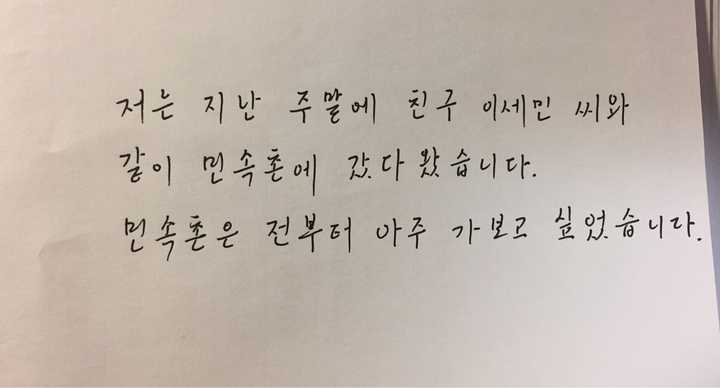 저는 지난 주말에 친구 이세민 씨와
같이 민속촌에 갔다 왔습니다.
민속촌은 전부터 아주 가보고 싶었습니다.